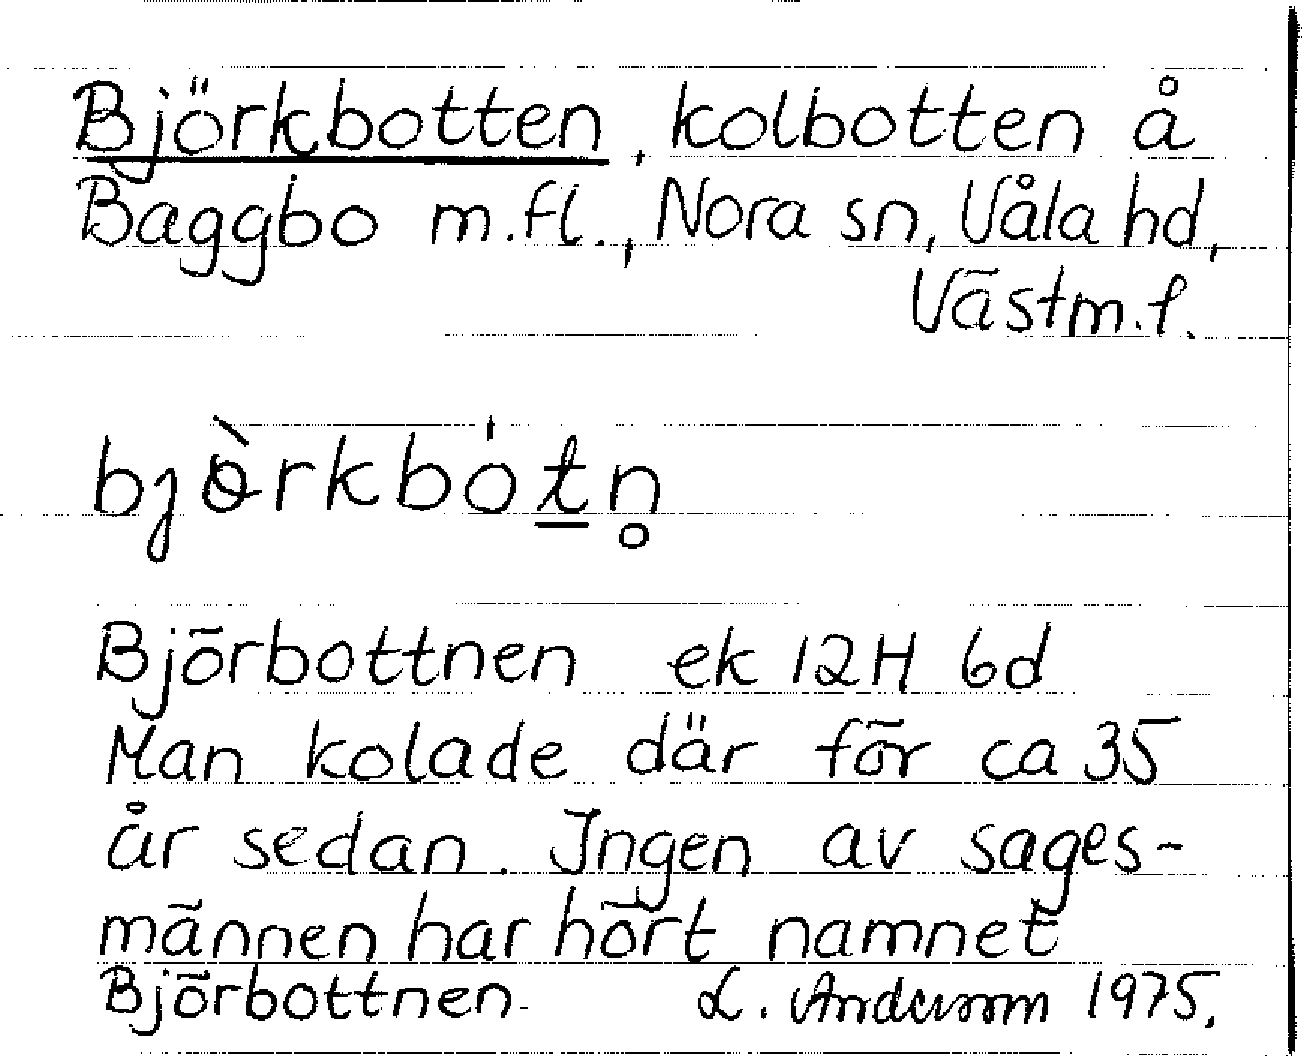 Björkbotten, kolbotten å
Baggbo m.fl., Nora sn, Våla hd,
Västm.l.
bjὸ̵rkbo̍t̲n̥
Björbottnen ek 12H 6d
Man kolade där för ca 35
år sedan. Ingen av sages-
männen har hört namnet
Björbottnen. L. Andersson 1975.